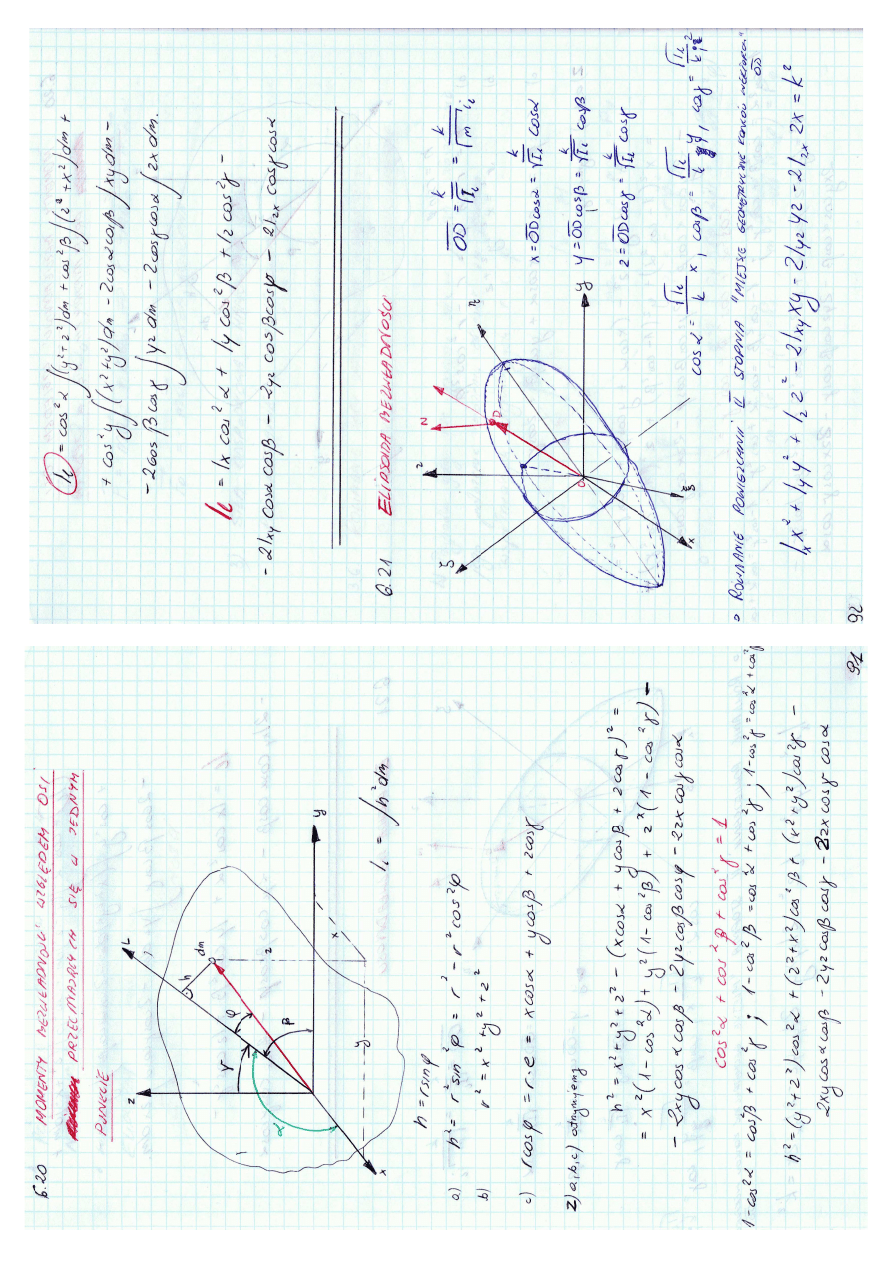 6.20 MOMENTY BEZWŁADNOŚCI WZGLĘDEM OSI
PRZECINAJĄCYCH SIĘ W JEDNYM
PUNKCIE
z
L
dm
h
φ
γ
β
α
z
x
y
y
x
I_L = ∫h²dm
h = r sinφ
a) h² = r² sin²φ = r² - r² cos²φ
b) r² = x² + y² + z²
c) r cosφ = r·e = x cosα + y cosβ + z cosγ
Z) a, b, c) otrzymujemy
h² = x² + y² + z² - (x cosα + y cosβ + z cosγ)² =
= x²(1 - cos²α) + y²(1 - cos²β) + z²(1 - cos²γ) -
- 2xy cosα cosβ - 2yz cosβ cosφ - 2zx cosγ cosα
cos²α + cos²β + cos²γ = 1
1-cos²α = cos²β + cos²γ ; 1-cos²β = cos²α + cos²γ ; 1-cos²γ = cos²α + cos²β
h² = (y²+z²) cos²α + (z²+x²) cos²β + (x²+y²) cos²γ -
2xy cosα cosβ - 2yz cosβ cosγ - 2zx cosγ cosα
91
I_L = cos²α ∫(y²+z²)dm + cos²β ∫(z²+x²)dm +
+ cos²γ ∫(x²+y²)dm - 2cosα cosβ ∫xy dm -
- 2cosβ cosγ ∫yz dm - 2cosγ cosα ∫zx dm.
I_L = Ix cos²α + Iy cos²β + Iz cos²γ -
- 2Ixy cosα cosβ - 2yz cosβ cosφ - 2Izx cosγ cosα
6.21 ELIPSOIDA BEZWŁADNOŚCI
ζ
z
N
D
η
y
O
ξ
x
OD = k/√I_L = k/(√m i_L)
x = OD cosα = k/√I_L cosα
y = OD cosβ = k/√I_L cosβ
z = OD cosγ = k/√I_L cosγ
cosα = √I_L/k x, cosβ = √I_L/k y, cosγ = √I_L/k z
• RÓWNANIE POWIERZCHNI II STOPNIA "MIEJSCE GEOMETRYCZNE KOŃCÓW ODCINKA" OD
I_x x² + I_y y² + I_z z² - 2I_xy xy - 2I_yz yz - 2I_zx zx = k²
92